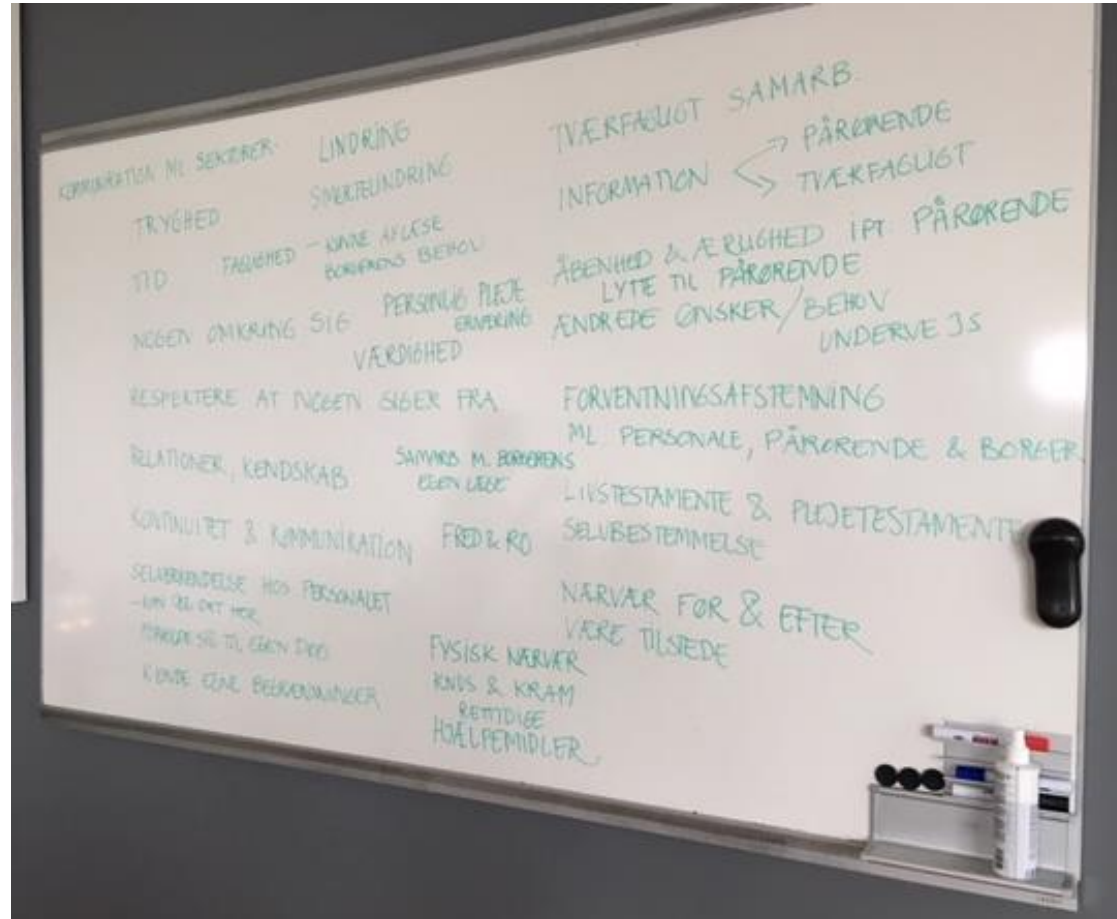 KOMMUNIKATION ML SEKTORER
LINDRING
SMERTELINDRING
TRYGHED
TID
FAGLIGHED - KUNNE AFLÆSE
BORGERENS BEHOV
NOGEN OMKRING SIG
PERSONLIG PLEJE
ERNÆRING
VÆRDIGHED
RESPEKTERE AT NOGEN SIGER FRA
RELATIONER, KENDSKAB
SAMARB M. BORGERENS
EGEN LÆGE
KONTINUITET & KOMMUNIKATION
FRED & RO
SELVERKENDELSE HOS PERSONALET
DET HER
SIG TIL EGEN DØD
KENDE EGNE BEGRÆNSNINGER
FYSISK NÆRVÆR
KNUS & KRAM
RETTIDIGE
HJÆLPEMIDLER
TVÆRFAGLIGT SAMARB
INFORMATION
PÅRØRENDE
TVÆRFAGLIGT
ÅBENHED & ÆRLIGHED IFT PÅRØRENDE
LYTTE TIL PÅRØRENDE
ÆNDREDE ØNSKER/BEHOV
UNDERVEJS
FORVENTNINGSAFSTEMNING
ML PERSONALE, PÅRØRENDE & BORGER
LIVSTESTAMENTE & PLEJETESTAMENTE
SELVBESTEMMELSE
NÆRVÆR FØR & EFTER
VÆRE TILSTEDE